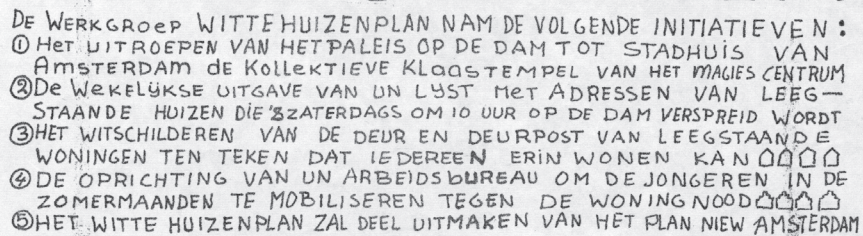 DE WERKGROEP WITTEHUIZENPLAN NAM DE VOLGENDE INITIATIEVEN:
① HET UITROEPEN VAN HET PALEIS OP DE DAM TOT STADHUIS VAN
AMSTERDAM de KOLLEKTIEVE KLAASTEMPEL VAN HET MAGIES CENTRUM
② DE WEKELIJKSE UITGAVE VAN UN LYST MET ADRESSEN VAN LEEG-
STAANDE HUIZEN DIE 'SZATERDAGS OM 10 UUR OP DE DAM VERSPREID WORDT
③ HET WITSCHILDEREN VAN DE DEUR EN DEURPOST VAN LEEGSTAANDE
WONINGEN TEN TEKEN DAT IEDEREEN ERIN WONEN KAN
④ DE OPRICHTING VAN UN ARBEIDSBUREAU OM DE JONGEREN IN DE
ZOMERMAANDEN TE MOBILISEREN TEGEN DE WONINGNOOD
⑤ HET WITTE HUIZENPLAN ZAL DEEL UITMAKEN VAN HET PLAN NIEW AMSTERDAM